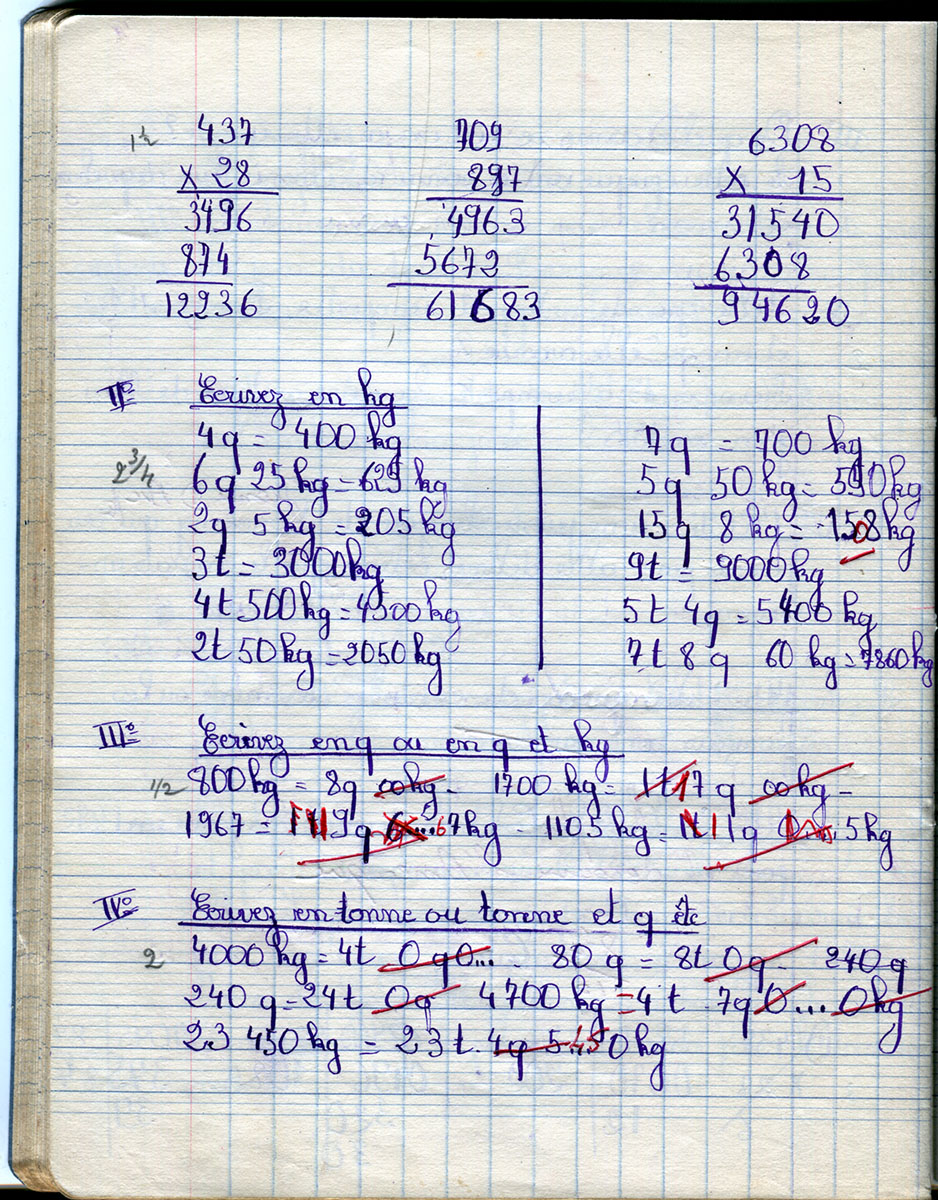 1½ 437 709 6308
x 28 897 x 15
3496 4963 31540
874 5672 6308
12236 61683 94620
II° Ecrivez en kg
4q = 400 kg 7q = 700 kg
2¾ 6q 25 kg = 625 kg 5q 50 kg = 550 kg
2q 5 kg = 205 kg 15q 8 kg = 1508 kg
3t = 3000 kg 9t = 9000 kg
4t 500 kg = 4500 kg 5t 4q = 5400 kg
2t 50 kg = 2050 kg 7t 8q 60 kg = 7860 kg
III° Ecrivez en q ou en q et kg
1/2 800 kg = 8q 00 kg - 1700 kg = 1t 17 q 00 kg -
1967 = 19q 67 kg - 1105 kg = 11q 5 kg
IV° Ecrivez en tonne ou tonne et q etc
2 4000 kg = 4t 0 q 0... - 80 q = 8t 0q - 240 q
240 q = 24t 0q 4700 kg = 4 t 7q 0... 0 kg
23 450 kg = 23 t 4q 5 450 kg